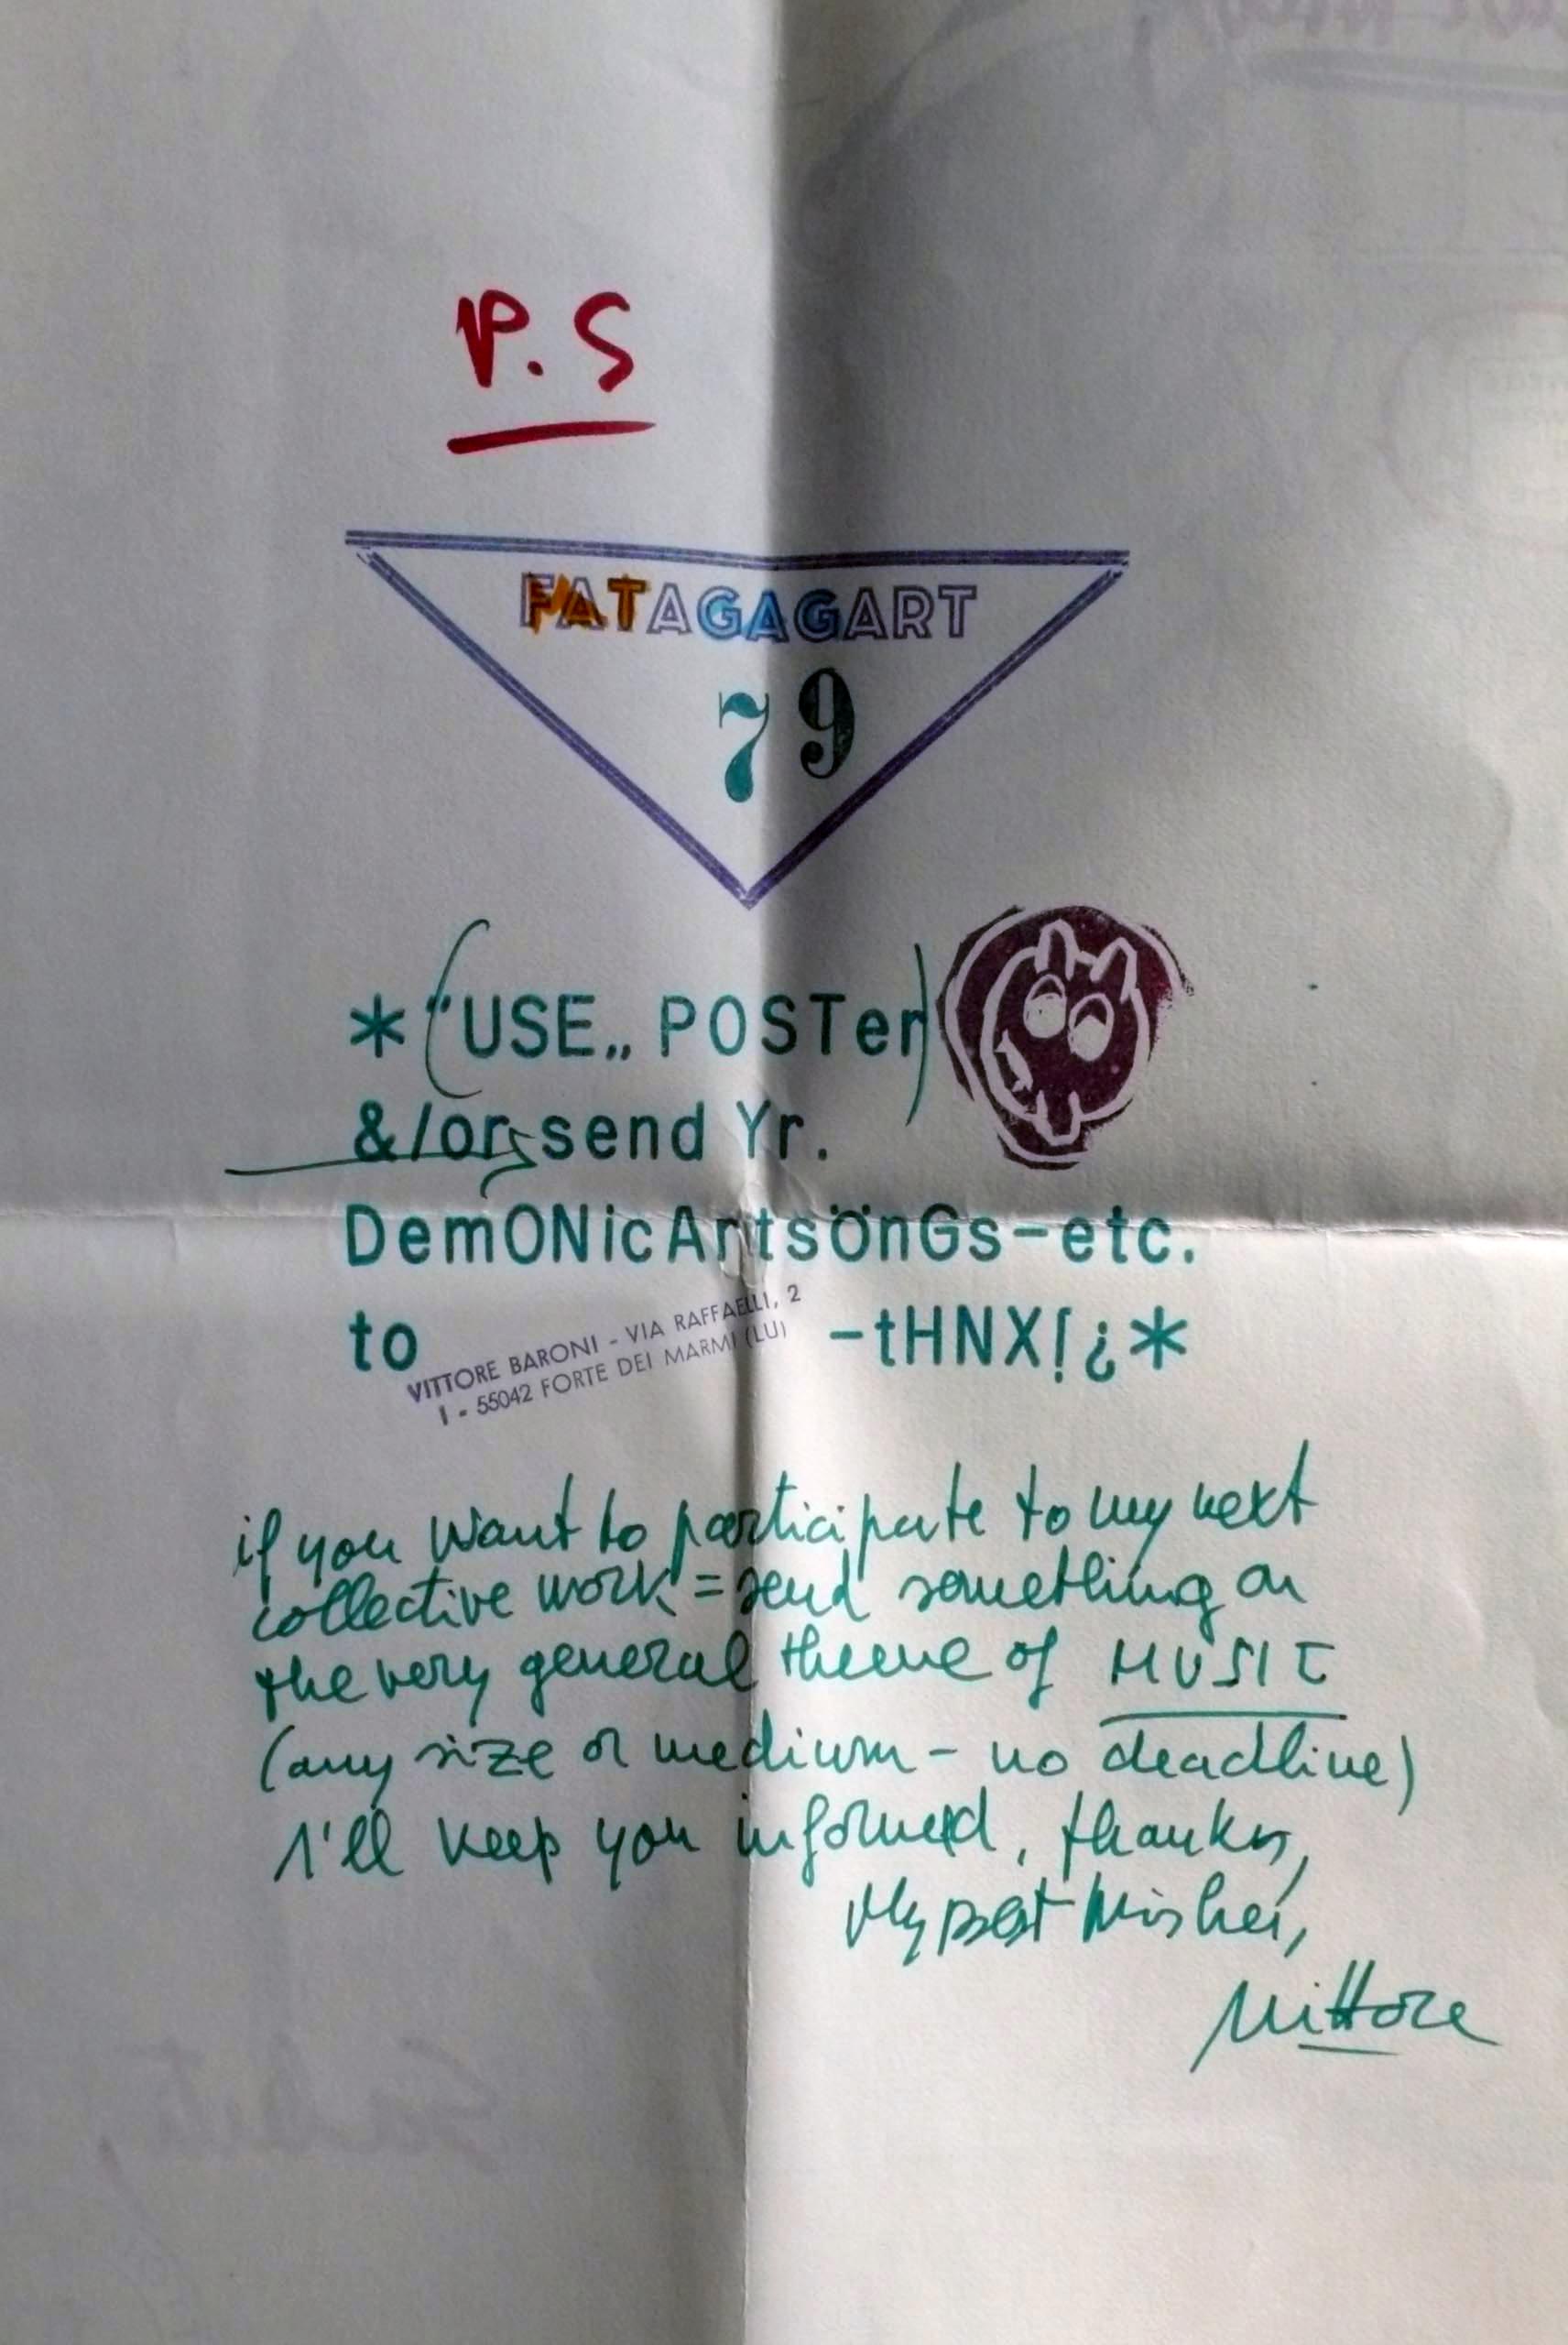 P.S
FATAGAGART
79
*("USE„ POSTer)
&/or send Yr.
DemONicArtsönGs-etc.
to -tHNX!¿*
VITTORE BARONI - VIA RAFFAELLI, 2
I - 55042 FORTE DEI MARMI (LU)
if you want to participate to my next
collective work = send something on
the very general theme of MUSIC
(any size or medium - no deadline)
I'll keep you informed, thanks,
My best wishes,
Vittore